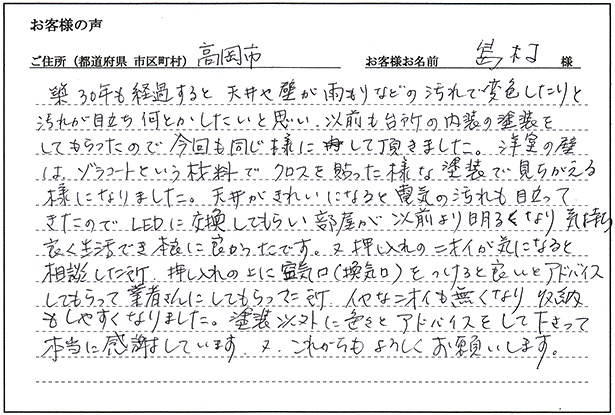 お客様の声
ご住所（都道府県 市区町村） 高岡市 お客様お名前 島村 様
築30年も経過すると 天井や壁が雨もりなどの汚れで変色したりと
汚れが目立ち 何とかしたいと思い、以前も台所の内装の塗装を
してもらったので 今回も同じ様に して頂きました。洋室の壁
は、ゾラコートという材料で クロスを貼った様な塗装で 見ちがえる
様になりました。天井がきれいになると 電気の汚れも目立って
きたので LEDに交換してもらい 部屋が以前より明るくなり 気持ち
良く生活でき 本当に良かったです。又 押し入れのニオイが気になると
相談した所、押し入れの上に空気口(換気口)をつけると良いとアドバイス
してもらって 業者さんにしてもらった所 イヤなニオイも無くなり 収納
もしやすくなりました。塗装以外に色々と アドバイスをして下さって
本当に感謝しています。又、これからも よろしくお願いします。